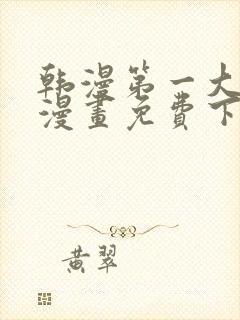 韩漫第一大
漫畫免費下
黄翠